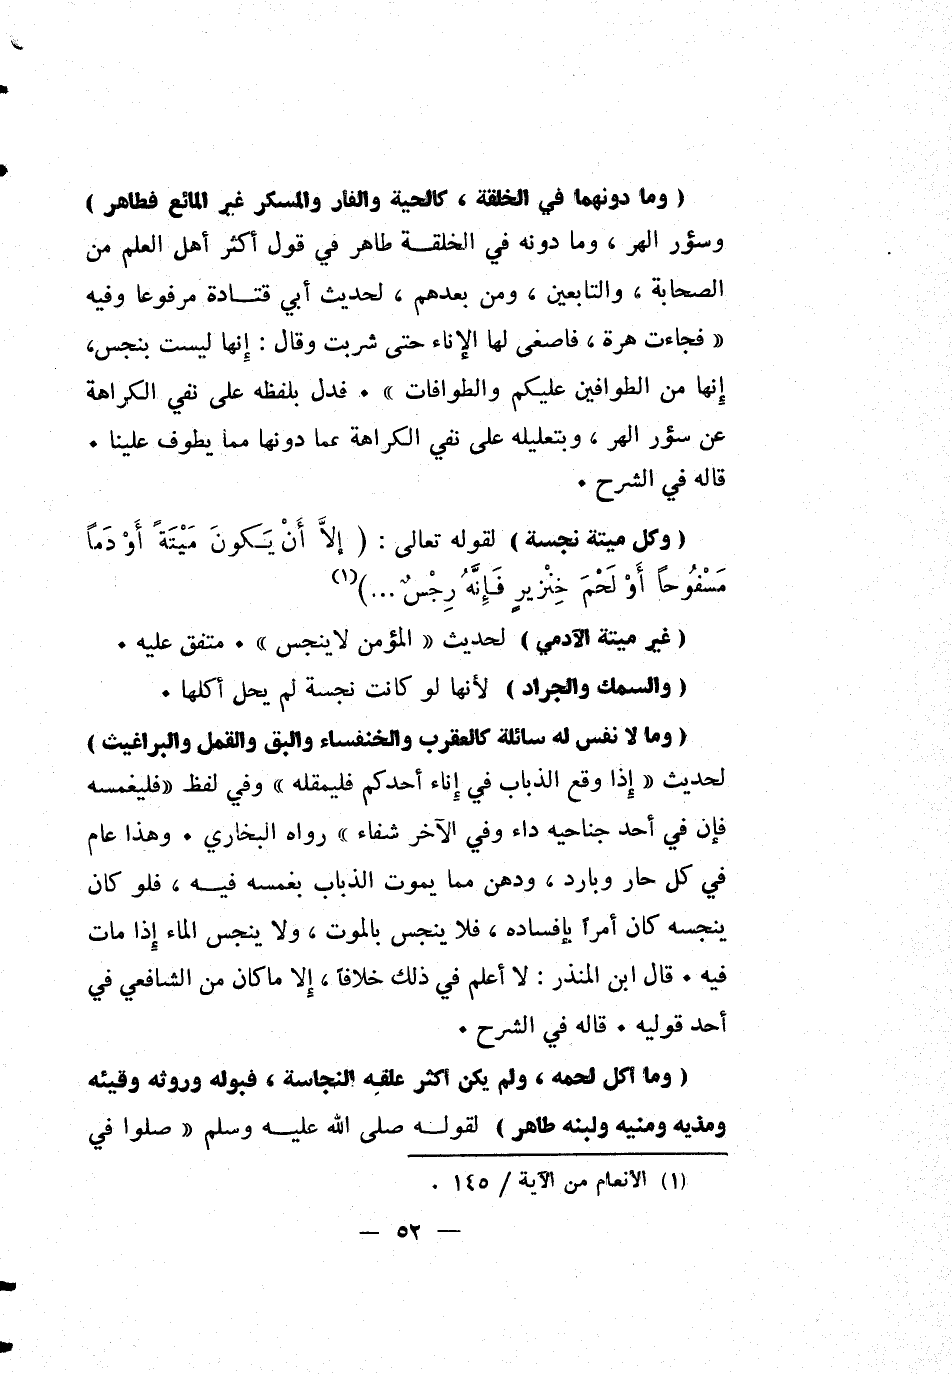 ( وما دونهما في الخلقة ، كالحية والفار والمسكر غير المائع فطاهر )
وسؤر الهر ، وما دونه في الخلقــة طاهر في قول أكثر أهل العلم من
الصحابة ، والتابعين ، ومن بعدهم ، لحديث أبي قتــادة مرفوعا وفيه
« فجاءت هرة ، فاصغى لها الإناء حتى شربت وقال : إنها ليست بنجس،
إنها من الطوافين عليكم والطوافات » . فدل بلفظه على نفي الكراهة
عن سؤر الهر ، وبتعليله على نفي الكراهة عما دونها مما يطوف علينا .
قاله في الشرح .
( وكل ميتة نجسة ) لقوله تعالى : ( إلاَّ أَنْ يَكونَ مَيْتَةً أَوْ دَماً
مَسْفُوحاً أَوْ لَحْمَ خِنْزيرٍ فَإنَّهُ رِجْسٌ ... )(١)
( غير ميتة الآدمي ) لحديث « المؤمن لاينجس » . متفق عليه .
( والسمك والجراد ) لأنها لو كانت نجسة لم يحل أكلها .
( وما لا نفس له سائلة كالعقرب والخنفساء والبق والقمل والبراغيث )
لحديث « إذا وقع الذباب في إناء أحدكم فليمقله » وفي لفظ «فليغمسه
فإن في أحد جناحيه داء وفي الآخر شفاء » رواه البخاري . وهذا عام
في كل حار وبارد ، ودهن مما يموت الذباب بغمسه فيــه ، فلو كان
ينجسه كان أمراً بإفساده ، فلا ينجس بالموت ، ولا ينجس الماء إذا مات
فيه . قال ابن المنذر : لا أعلم في ذلك خلافاً ، إلا ماكان من الشافعي في
أحد قوليه . قاله في الشرح .
( وما أكل لحمه ، ولم يكن أكثر علفه النجاسة ، فبوله وروثه وقيئه
ومذيه ومنيه ولبنه طاهر ) لقولــه صلى الله عليــه وسلم « صلوا في
(١) الأنعام من الآية / ١٤٥ .
— ٥٢ —